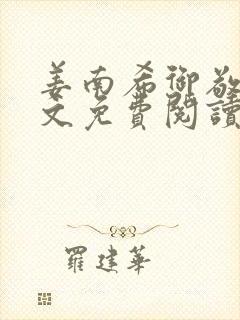 姜南希御敬
文免費閱讀
羅建華